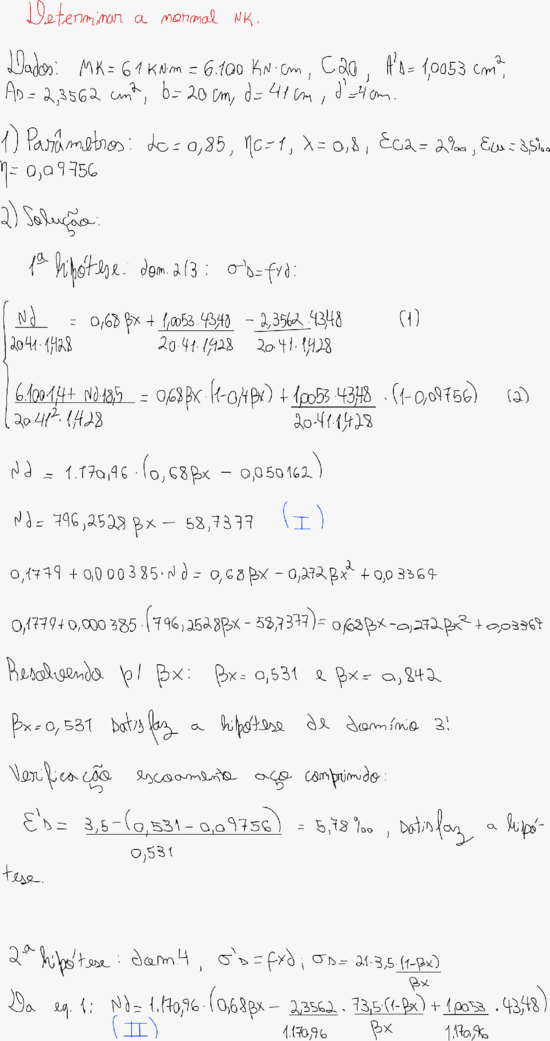 Determinar a normal NK.
Dados: MK = 61 KN.m = 6.100 KN.cm, C20, A's = 1,0053 cm²,
As = 2,3562 cm², b = 20 cm, d = 41 cm, d' = 4 cm.
1) Parâmetros: αc = 0,85, ηc = 1, λ = 0,8, εc2 = 2‰, εcu = 3,5‰
η = 0,09756
2) Solução:
1ª hipótese: dom. 2/3: σ's = fyd:
Nd/(20.41.1,428) = 0,68βx + (1,0053.43,48)/(20.41.1,428) - (2,3562.43,48)/(20.41.1,428) (1)
(6.100.1,4 + Nd.18,5)/(20.41².1,428) = 0,68βx.(1-0,4βx) + (1,0053.43,48)/(20.41.1,428) . (1-0,09756) (2)
Nd = 1.170,96.(0,68βx - 0,050162)
Nd = 796,2528βx - 58,7377 (I)
0,1779 + 0,000385.Nd = 0,68βx - 0,272βx² + 0,03369
0,1779 + 0,000385.(796,2528βx - 58,7377) = 0,68βx - 0,272βx² + 0,03369
Resolvendo p/ βx: βx = 0,531 e βx = 0,842
βx = 0,531 satisfaz a hipótese de domínio 3!
Verificação escoamento aço comprimido:
ε's = 3,5-(0,531-0,09756)/0,531 = 5,78‰, satisfaz a hipó-
tese.
2ª hipótese: dom.4, σ's = fyd; σs = 21.3,5.(1-βx)/βx
Da eq. 1: Nd = 1.170,96.(0,68βx - 2,3562/1.170,96 . 73,5.(1-βx)/βx + 1,0053/1.170,96 . 43,48)
(II)